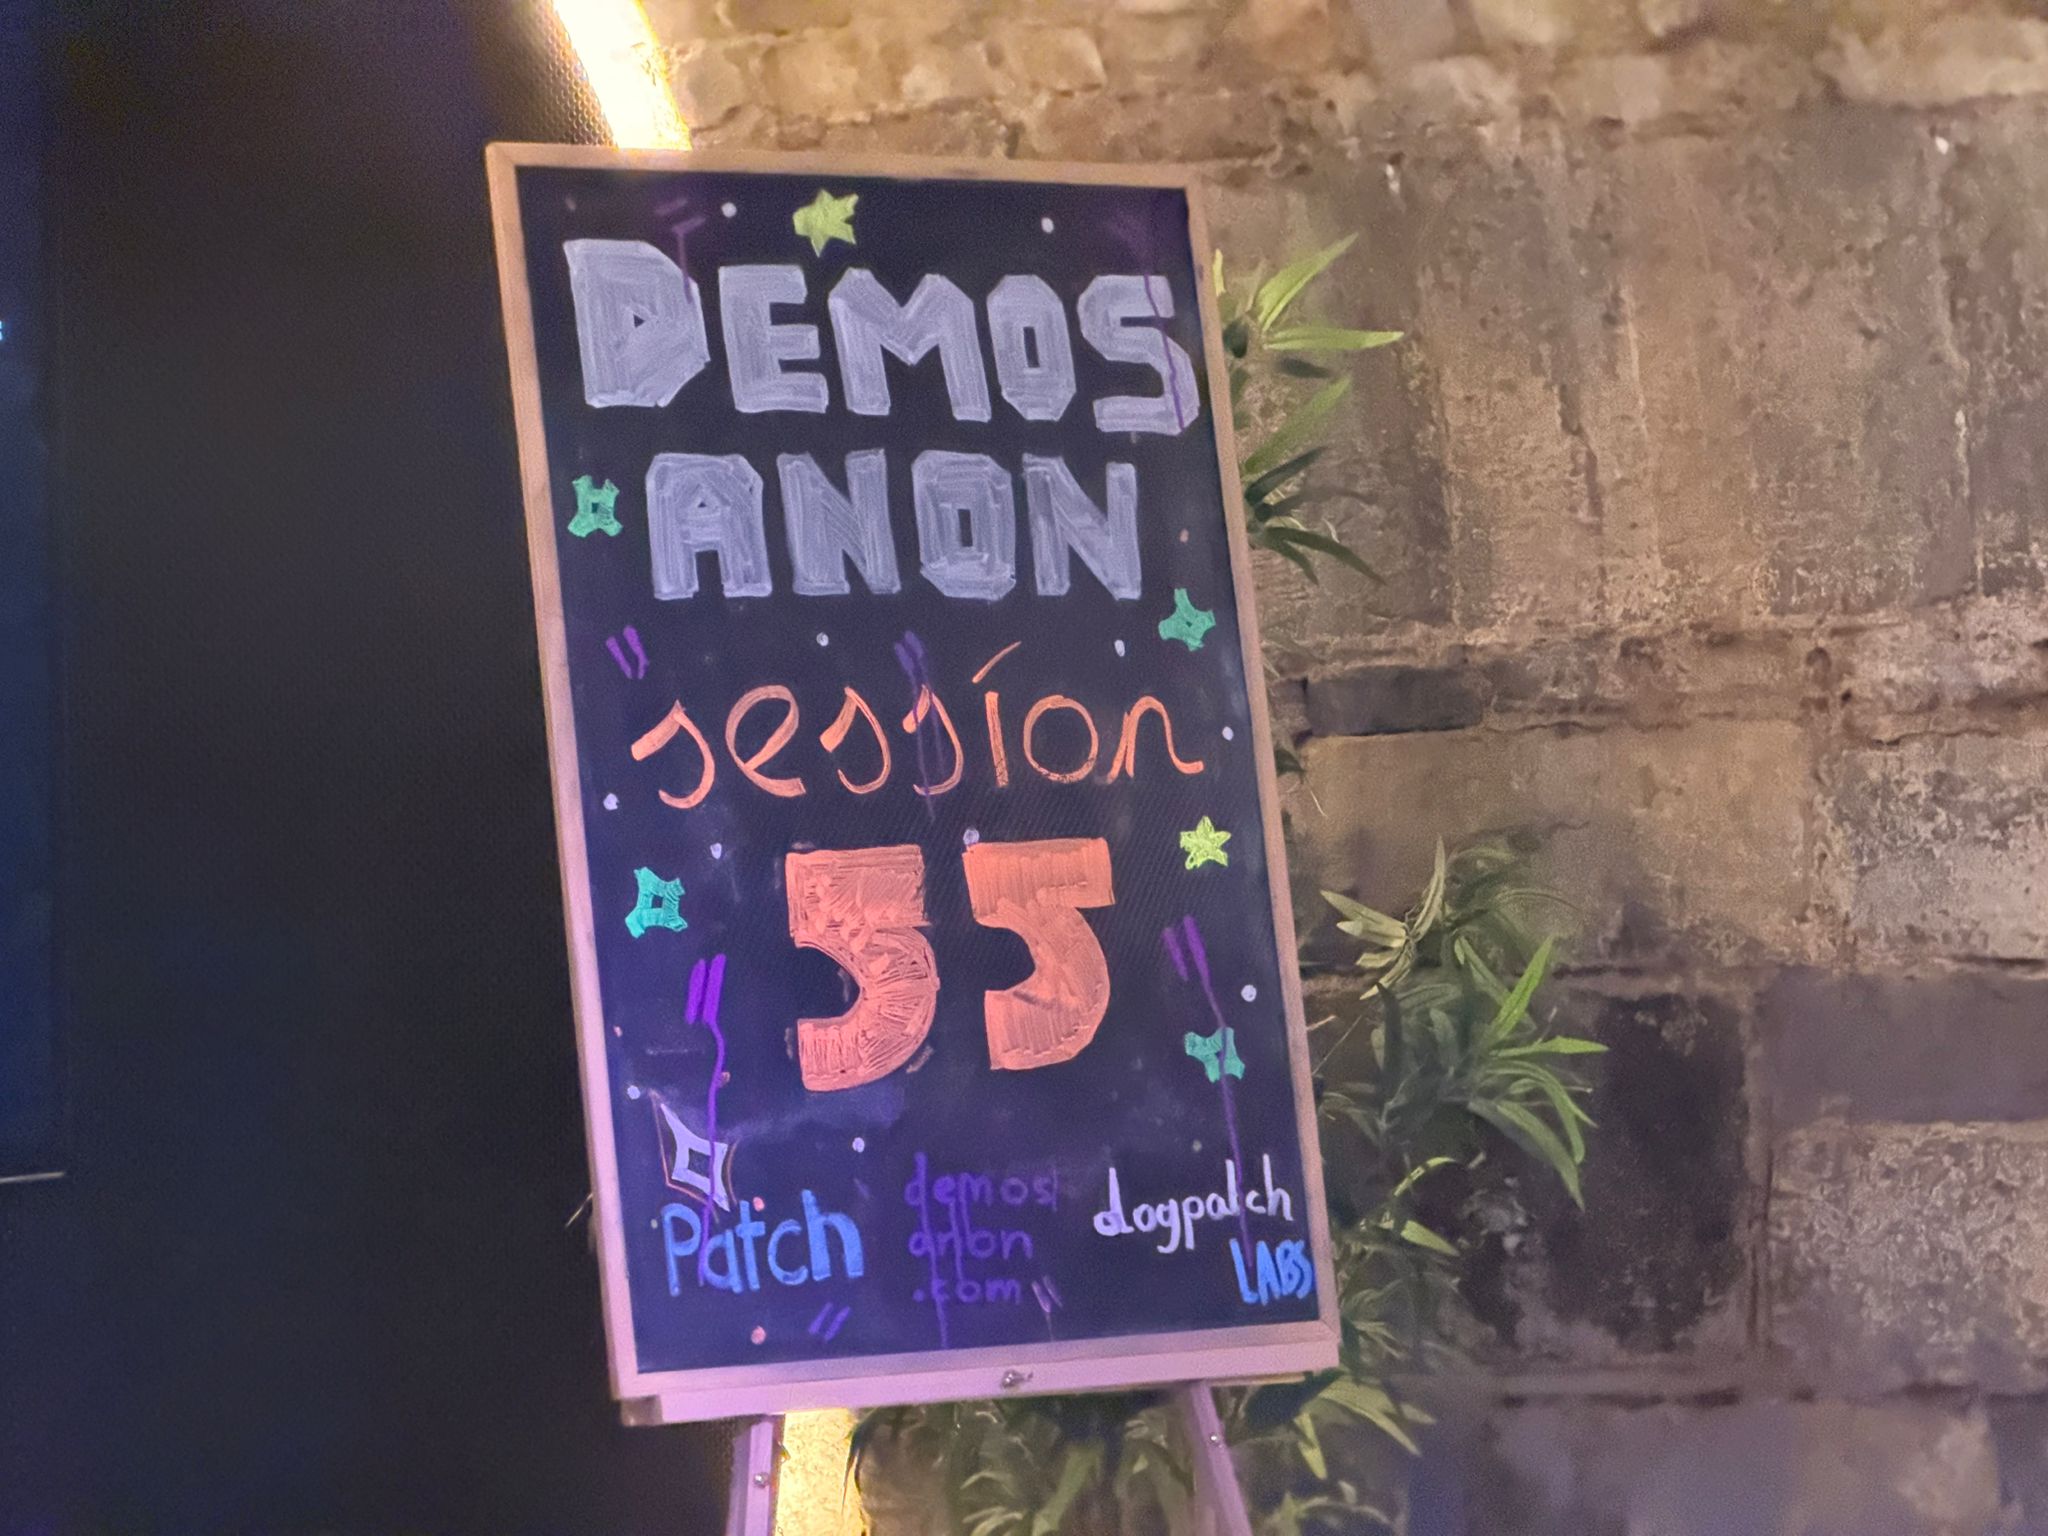 DEMOS
ANON
session
55
Patch
demos
anon
.com
dogpatch
LABS